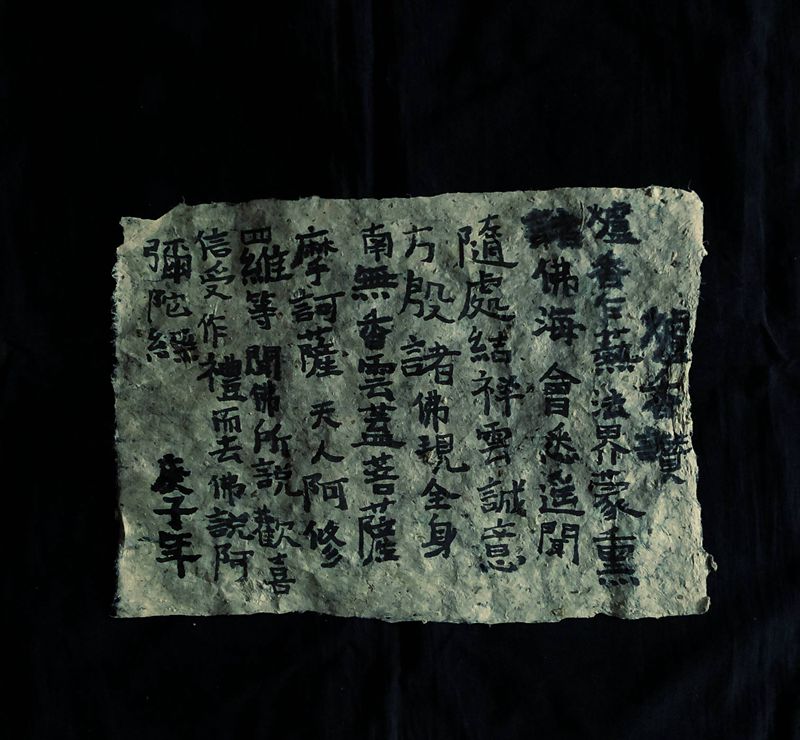 爐香讚
爐香乍爇法界蒙熏
諸佛海會悉遙聞
隨處結祥雲誠意
方殷諸佛現全身
南無香雲蓋菩薩
摩訶薩天人阿修
四維等聞佛所說歡喜
信受作禮而去佛說阿
彌陀經
庚子年